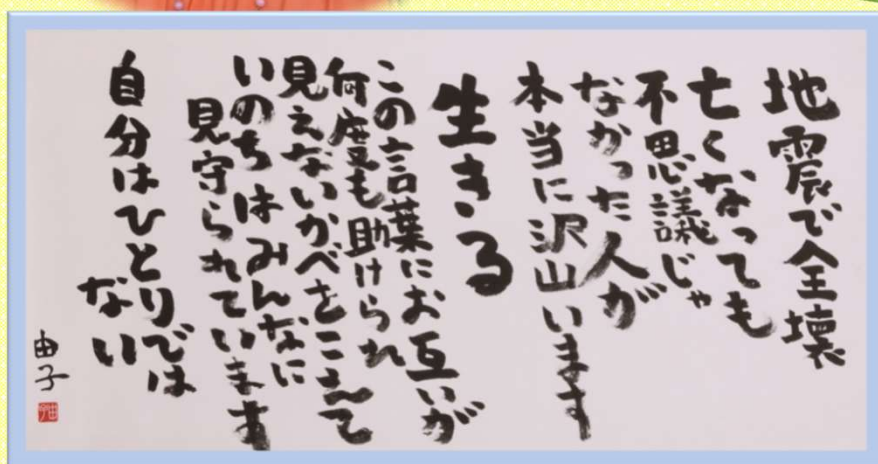 地震で全壊
亡くなっても
不思議じゃ
なかった人が
本当に沢山います
生きる
この言葉にお互いが
何度も助けられ
見えないかべをこえて
いのちはみんなに
見守られています
自分はひとりでは
ない
由子